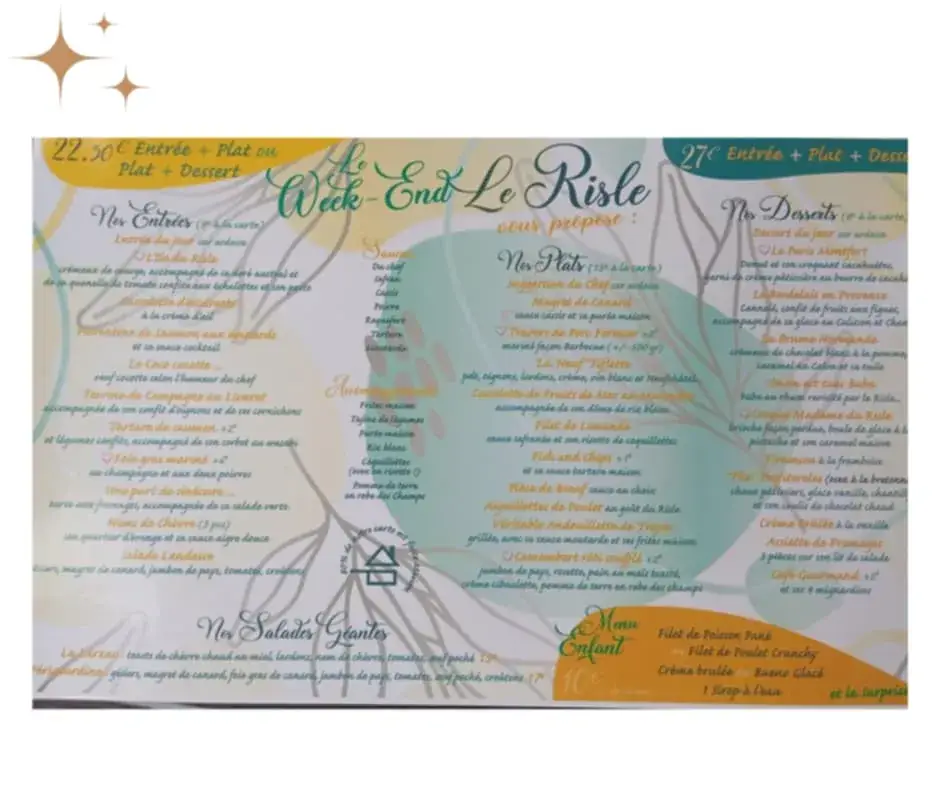 22.50€ Entrée + Plat ou
Plat + Dessert
Le
Week-End Le Risle
vous propose :
27€ Entrée + Plat + Desse
Nos Entrées (8€ à la carte)
Entrée du jour sur ardoise
L'Ile du Risle
crémeux de courge, accompagné de sa doré austral et
de sa quenelle de tomate confite aux échalottes et son pesto
à la crème d'ail
Florentine de Saumon aux épinards
et sa sauce cocktail
La Coco cocotte ...
oeuf cocotte selon l'humeur du chef
Terrine de Campagne au Lisieux
accompagnée de son confit d'oignons et de ses cornichons
Tartare de saumon +2€
et légumes confits, accompagné de son sorbet au wasabi
Foie gras mariné +6€
au champagne et aux deux poivres
Une part de
cuites aux fromages, accompagnée de sa salade verte
Nems de Chèvre (3 pcs)
son quartier d'orange et sa sauce aigre douce
Salade Landaise
magret de canard, jambon de pays, tomates, croûtons
Sauces
Du chef
Safran
Cassis
Poivre
Roquefort
Tartare
Frites maison
Tajine de légumes
Purée maison
Riz blanc
Coquillettes
(avec en risotto !)
Pomme de terre
en robe des Champs
Nos Plats (15€ à la carte)
Suggestion du Chef sur ardoise
Magret de Canard
sauce cassis et sa purée maison
Travers de Porc Fermier +2€
mariné façon Barbecue (+/- 500 gr)
La Neuf'Tiflette
pdt, oignons, lardons, crème, vin blanc et Neufchâtel
Cassolette de Fruits de Mer
accompagnée de son dôme de riz blanc
Filet de Limande
sauce safranée et son risotto de coquillettes
Fish and Chips +1€
et sa sauce tartare maison
Pièce de Boeuf sauce au choix
Aiguillettes de Poulet au goût du Risle
Véritable Andouillette de Troyes
grillée, avec sa sauce moutarde et ses frites maison
Camembert rôti soufflé +2€
jambon de pays, rosette, pain au maïs toasté,
crème ciboulette, pomme de terre en robe des champs
Nos Desserts (8€ à la carte)
Dessert du jour sur ardoise
Le Paris Montfort
Donut et son croquant cacahuètes,
garni de crème pâtissière au beurre de cacahu
Le Bordelais en Provence
Cannelé, confit de fruits aux figues,
accompagné de sa glace au Calisson et Chan
La Brume Normande
crémeux de chocolat blanc à la pomme,
caramel du Calva et sa tuile
baba au rhum revisité par le Risle...
Madame du Risle
brioche façon perdue, boule de glace à la
pistache et son caramel maison
à la framboise
Profiteroles (avec à la bretonne
choux pâtissiers, glace vanille, chantilly
et son coulis de chocolat chaud
Crème Brûlée à la vanille
Assiette de Fromages
3 pièces sur son lit de salade
Café Gourmand +2€
et ses 4 mignardises
Nos Salades Géantes
toasts de chèvre chaud au miel, lardons, nem de chèvre, tomates, oeuf poché 15€
gésiers, magret de canard, foie gras de canard, jambon de pays, tomates, oeuf poché, croûtons 17€
Menu
Enfant
10€
Filet de Poisson Pané
ou Filet de Poulet Crunchy
Crème brulée ou Bueno Glacé
1 Sirop à l'eau
et la Surpris